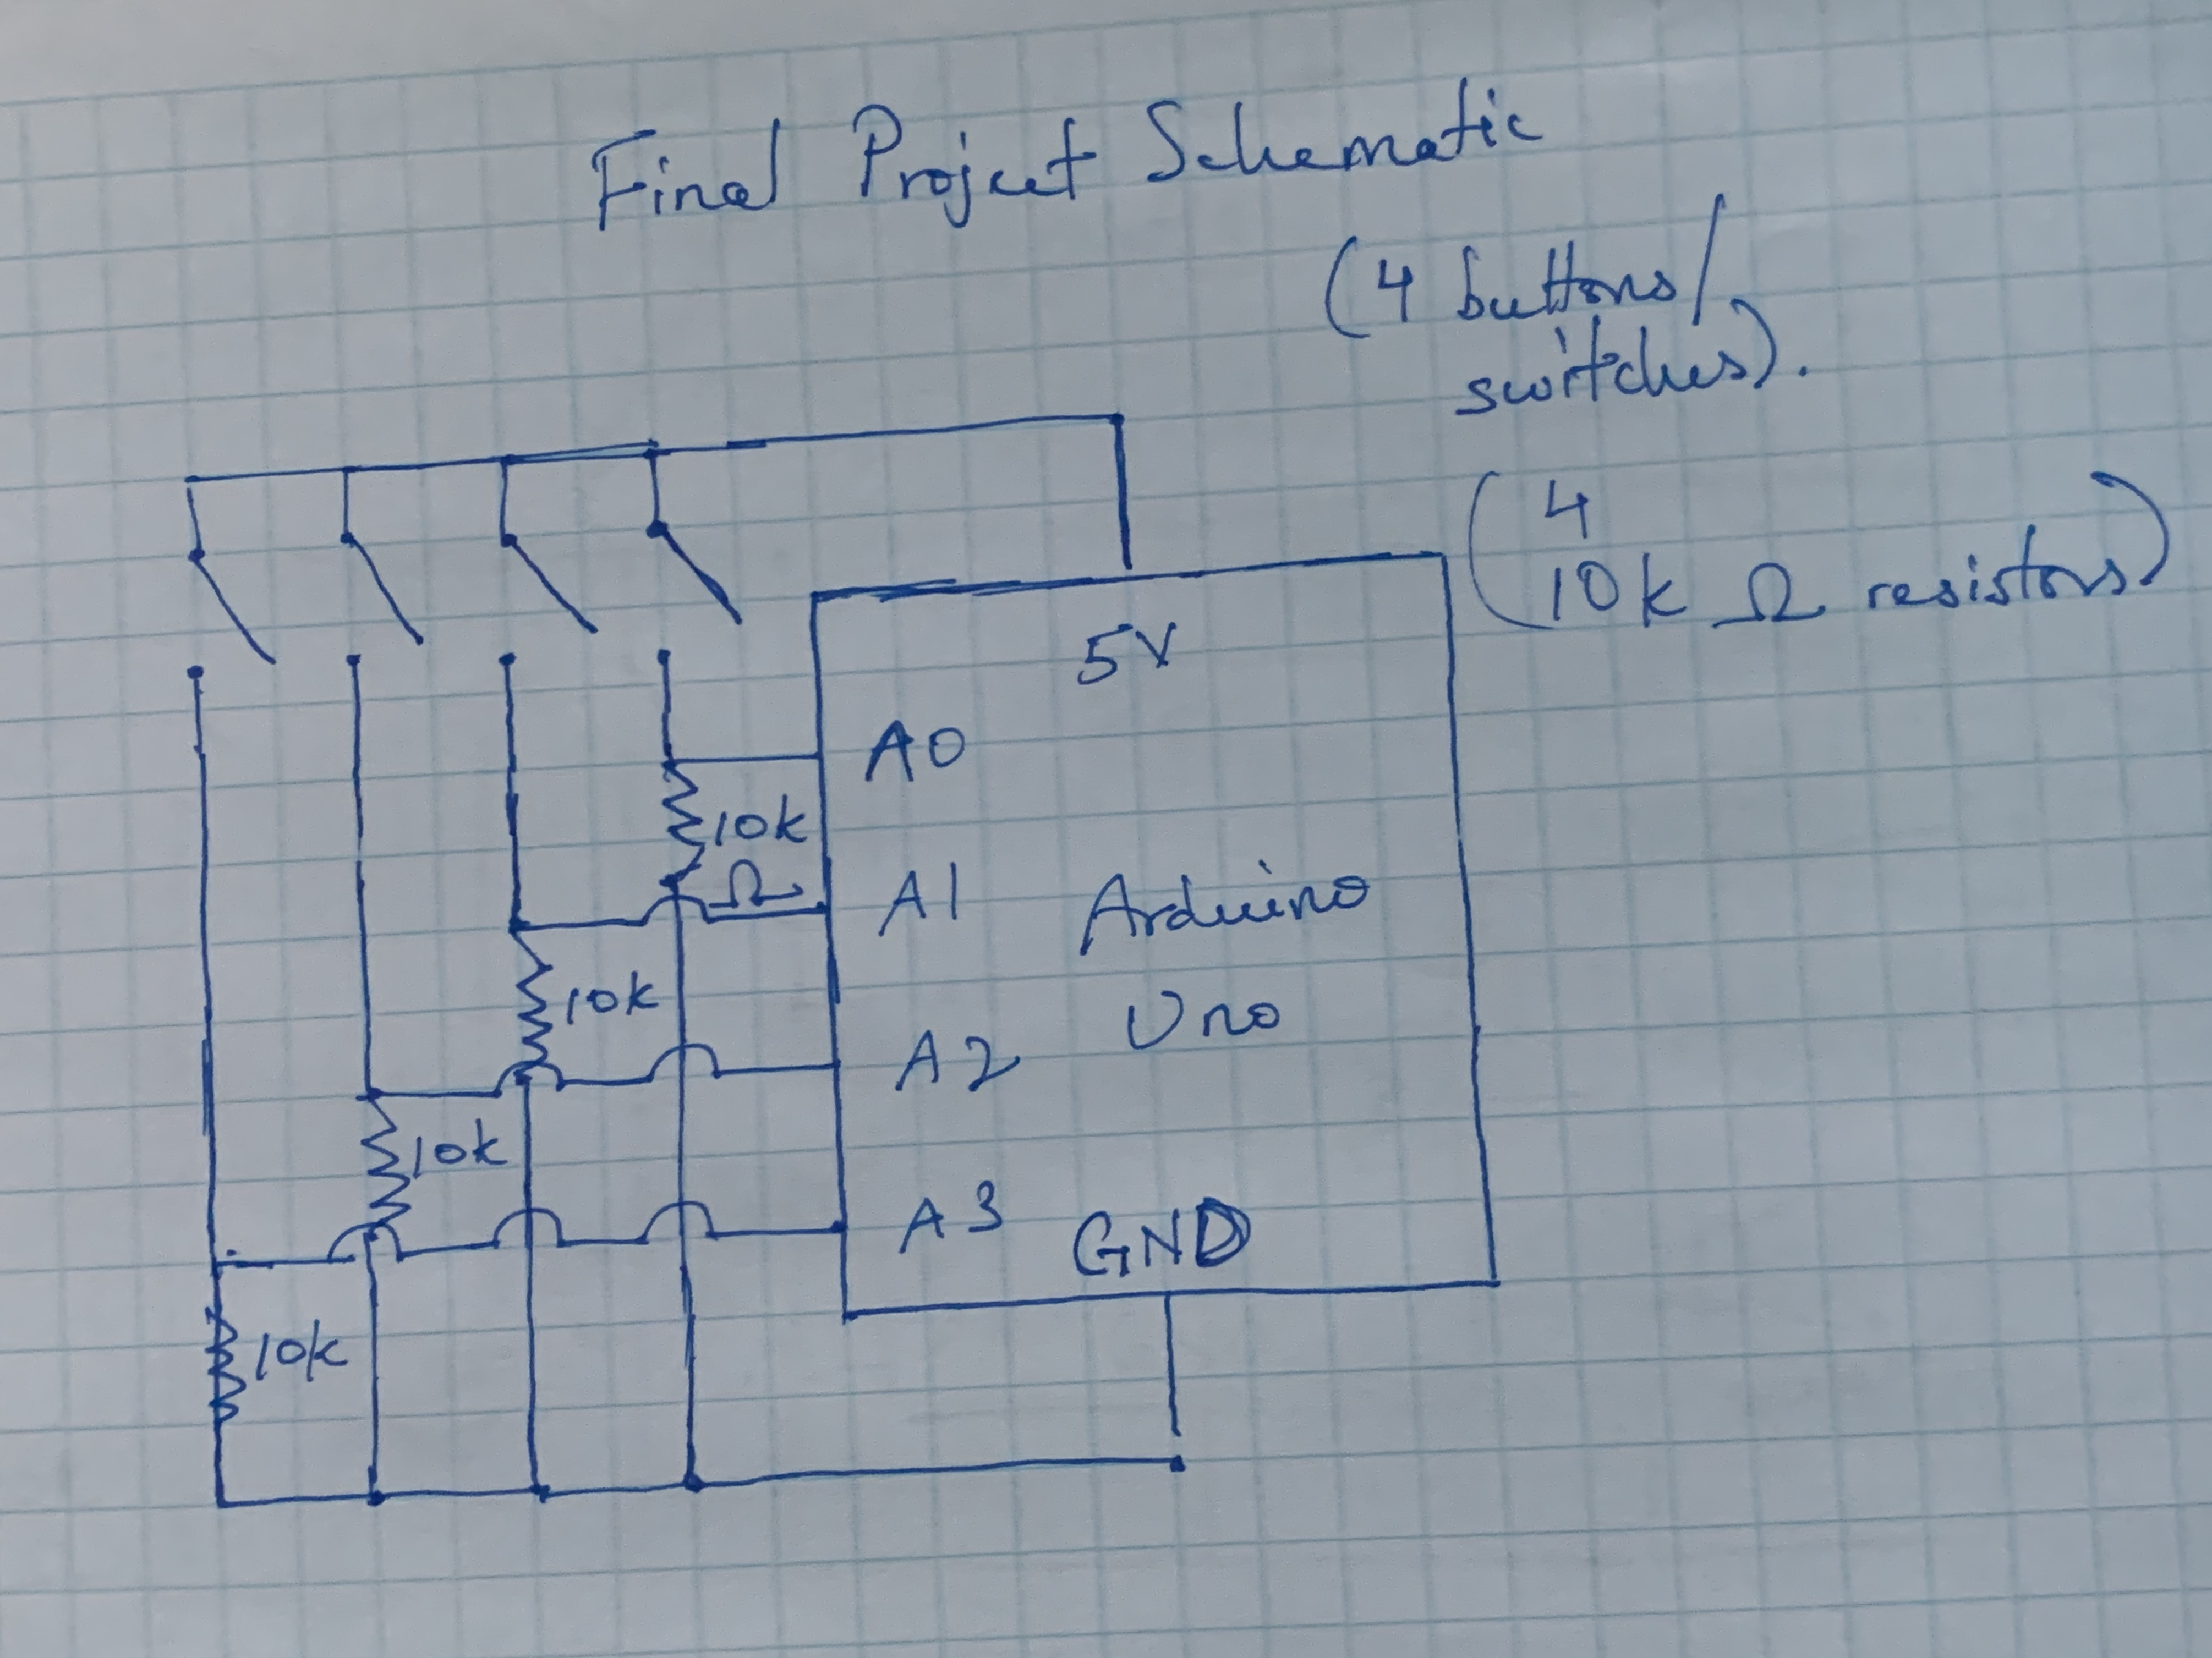 Final Project Schematic
(4 buttons/
switches).
(4
10k Ω resistors)
5V
A0
10k
Ω
A1
Arduino
Uno
10k
A2
10k
A3
GND
10k